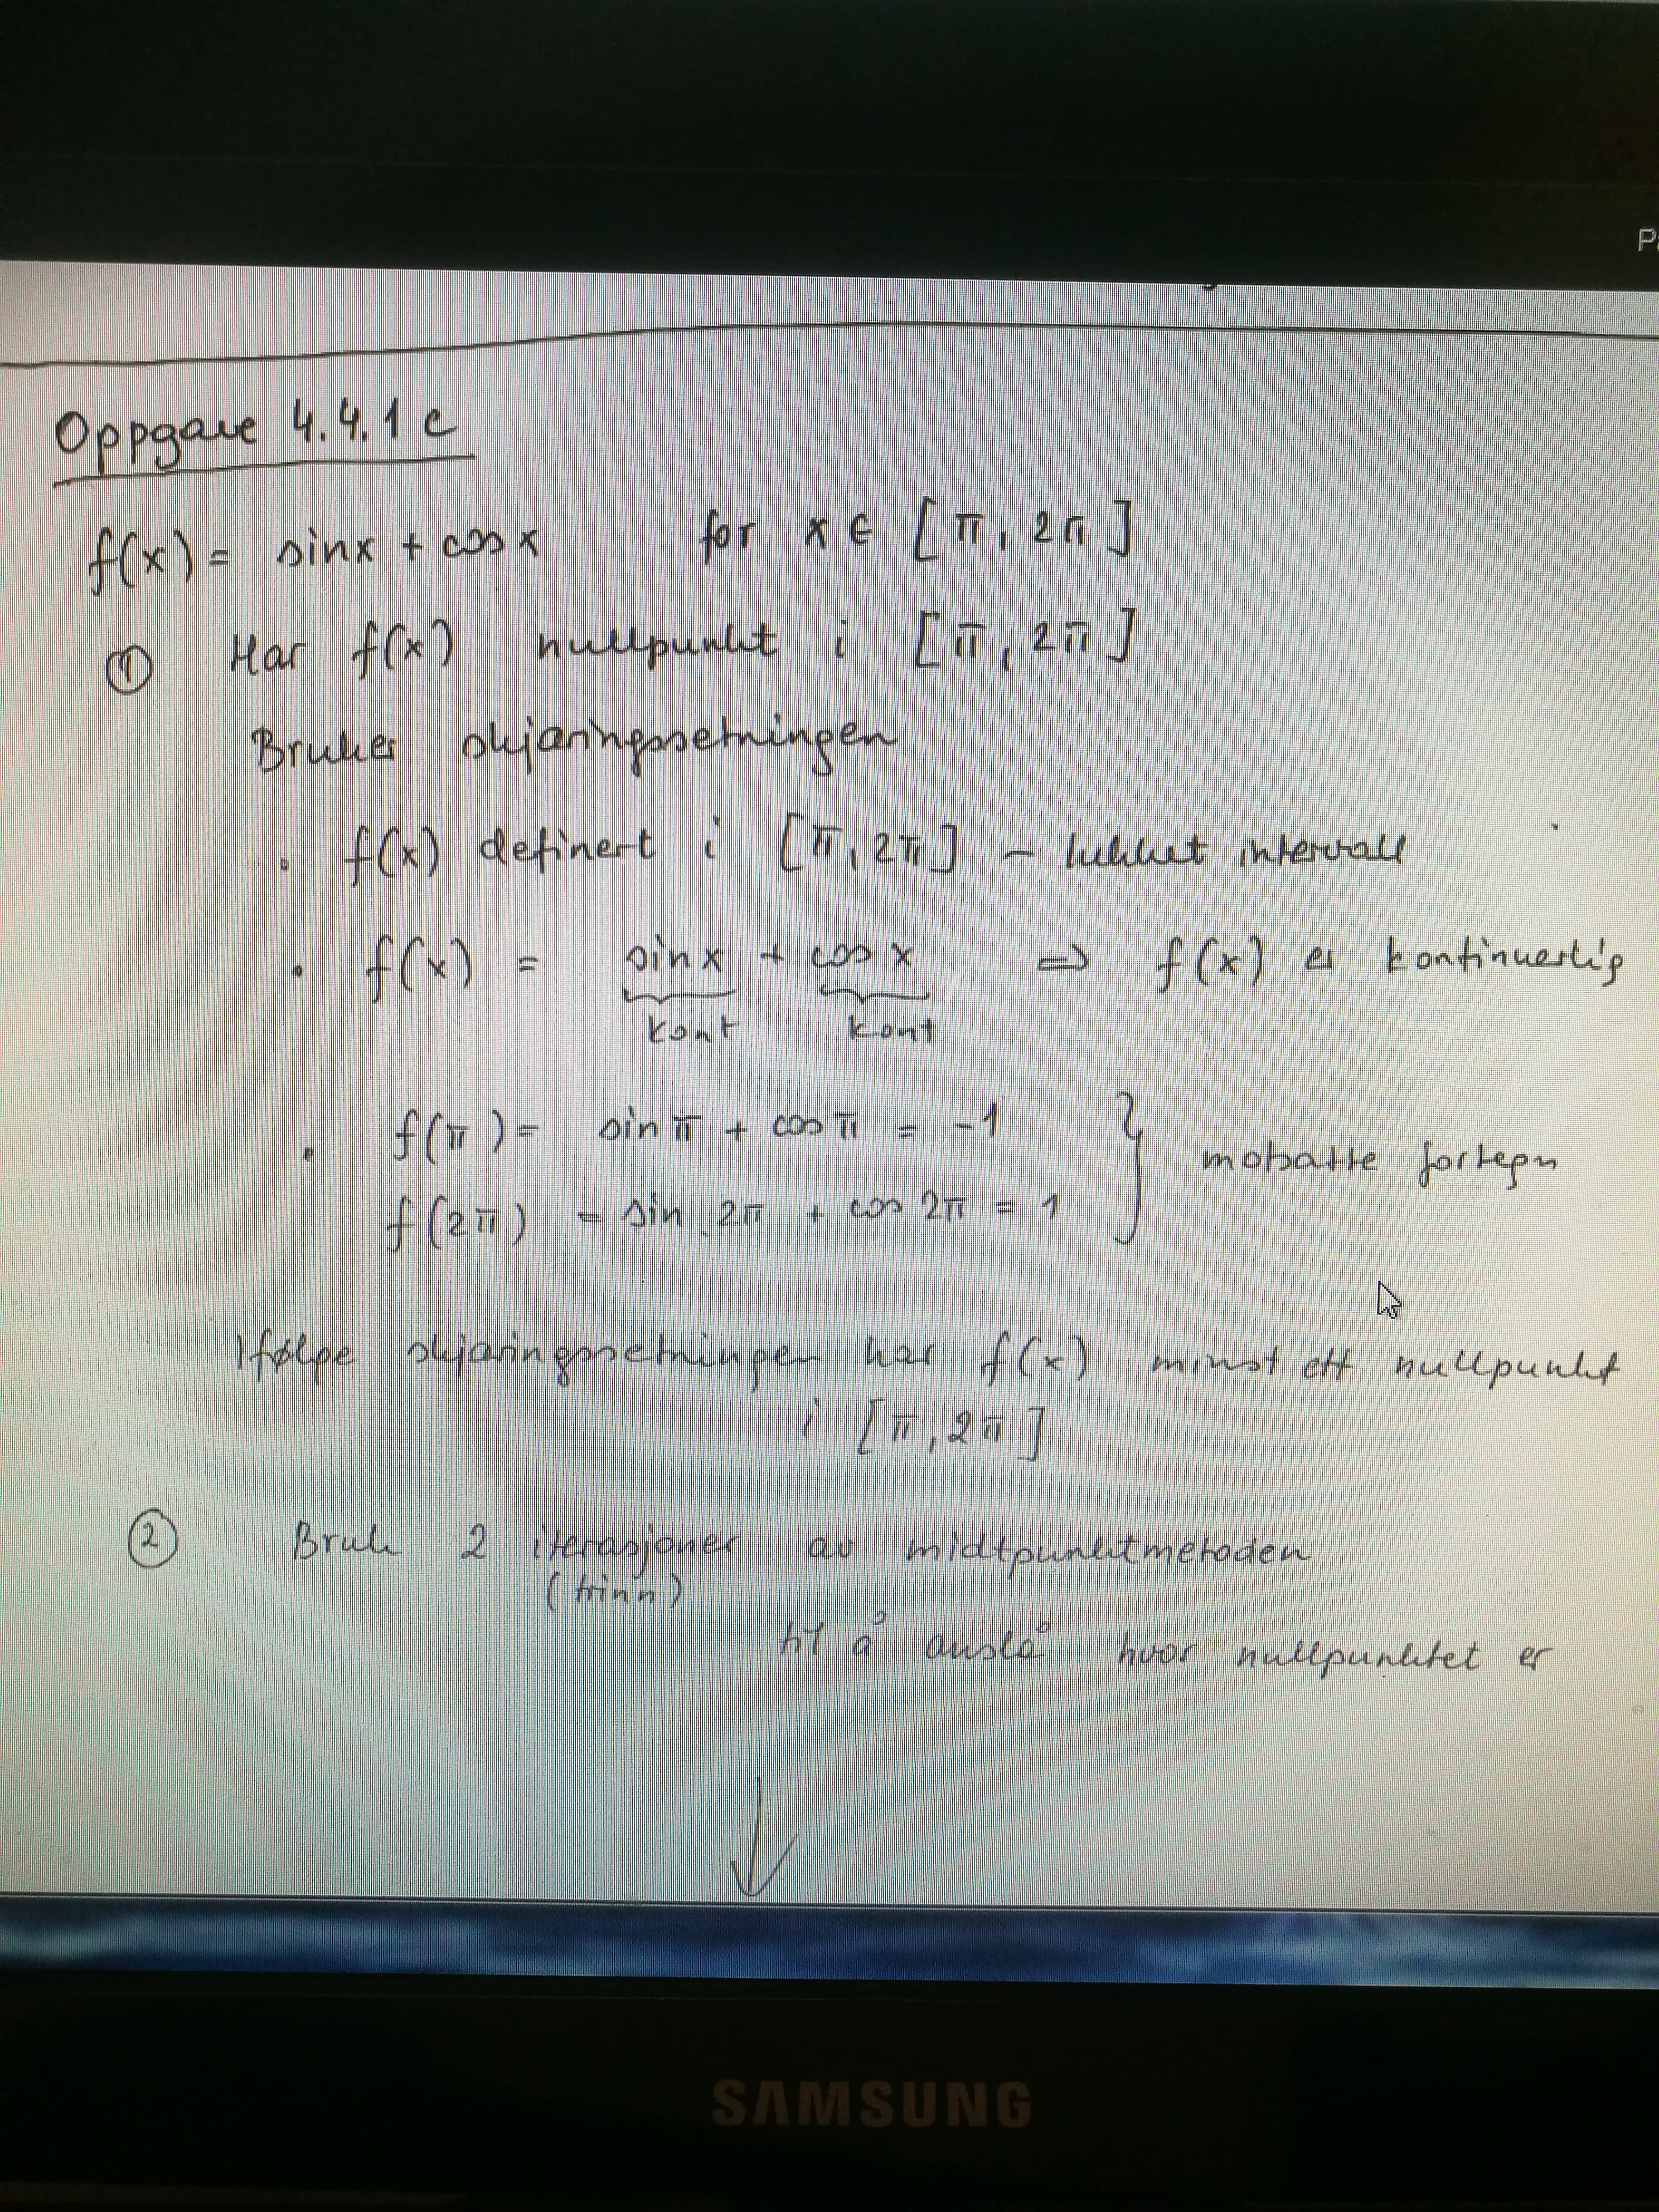 P
Oppgave 4.4.1 c
f(x) = sinx + cosx for x ∈ [π, 2π]
① Har f(x) nullpunkt i [π, 2π]
Bruker skjæringssetningen
• f(x) definert i [π, 2π] – lukket intervall
• f(x) = sinx + cosx ⇒ f(x) er kontinuerlig
kont kont
• f(π) = sin π + cos π = -1
} motsatte fortegn
f(2π) = sin 2π + cos 2π = 1
Ifølge skjæringssetningen har f(x) minst ett nullpunkt
i [π, 2π]
② Bruk 2 iterasjoner av midtpunktmetoden
(trinn)
til å anslå hvor nullpunktet er
SAMSUNG